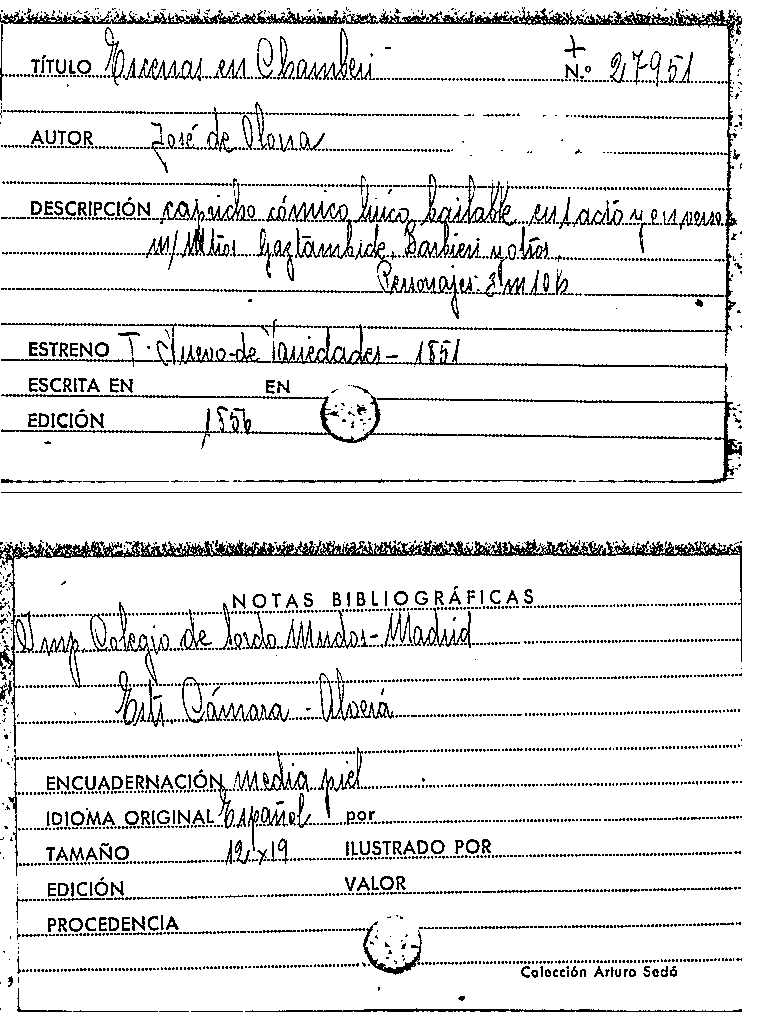 TÍTULO Escenas en Chamberí
+
N.º 27951
AUTOR José de Olona
DESCRIPCIÓN capricho cómico lírico bailable en 1 acto y en verso
m/ Mtros Gaztambide, Barbieri y otros.
Personajes: 3 m 10 h
ESTRENO T. Nuevo de Variedades - 1851
ESCRITA EN EN
EDICIÓN 1856
NOTAS BIBLIOGRÁFICAS
Imp Colegio de Sordo Mudos - Madrid
Cámara -
ENCUADERNACIÓN media piel
IDIOMA ORIGINAL Español por
TAMAÑO 12 x 19 ILUSTRADO POR
EDICIÓN VALOR
PROCEDENCIA
Colección Arturo Sedó